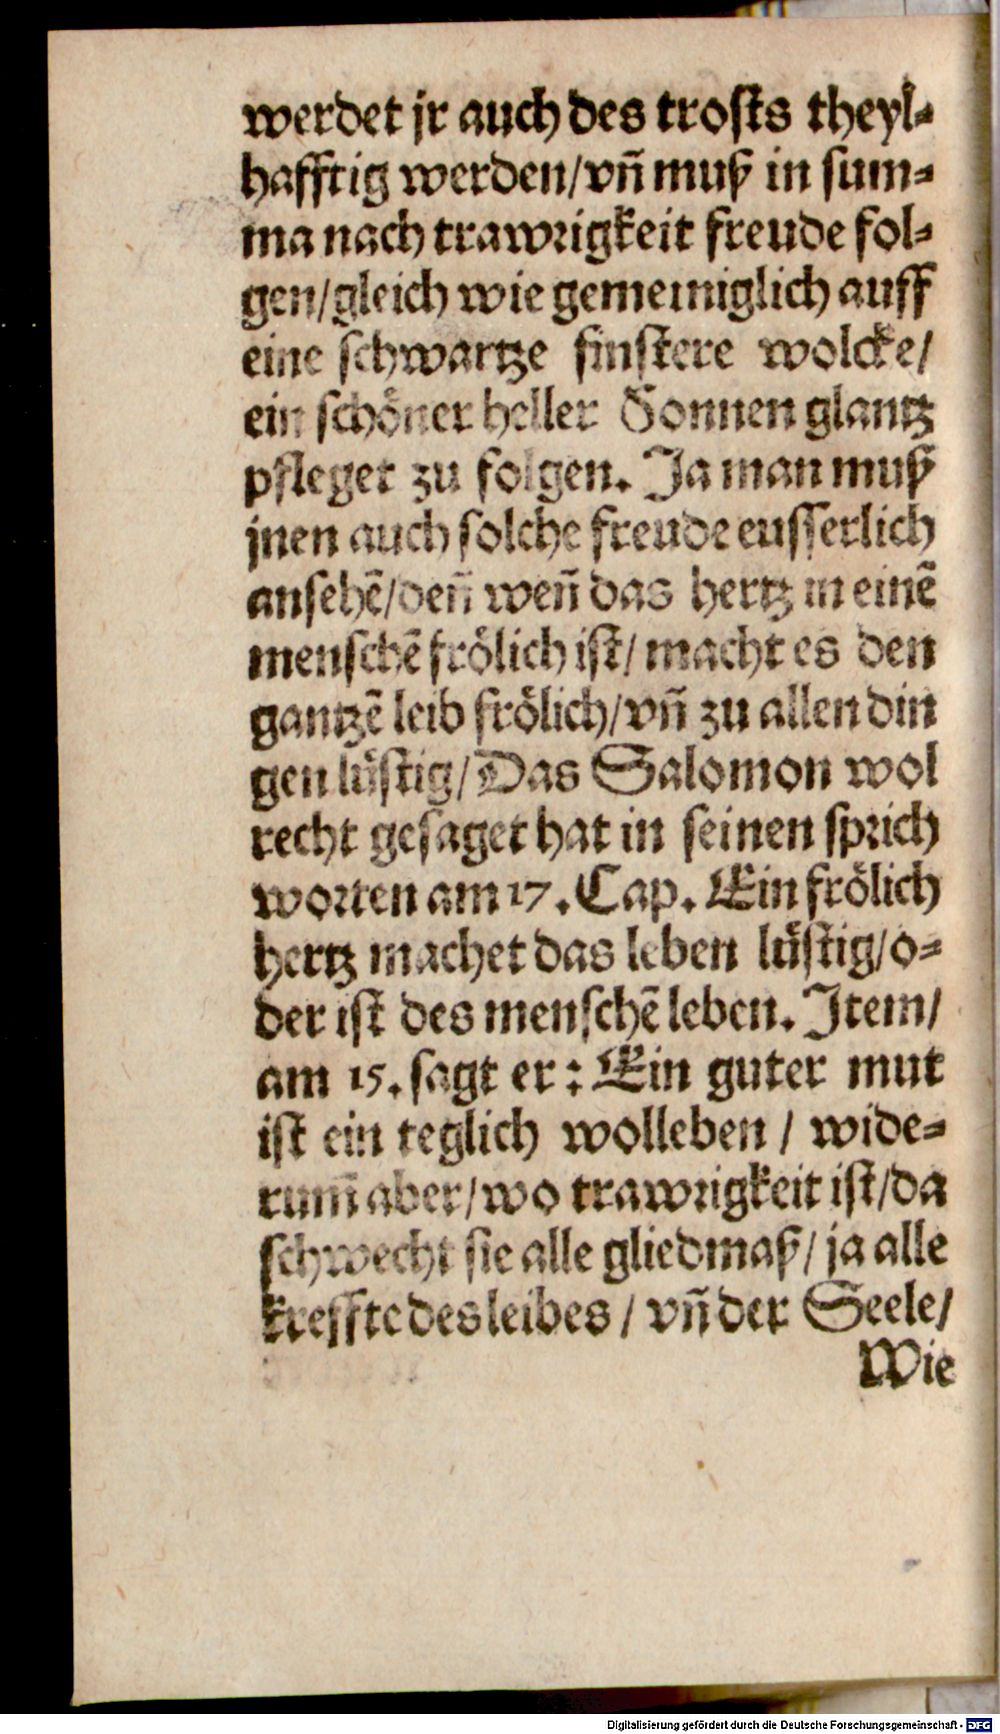 werdet jr auch des trosts theyl-
hafftig werden/vñ muß in sum-
ma nach trawrigkeit freude fol-
gen/gleich wie gemeiniglich auff
eine schwartze finstere wolcke/
ein schöner heller Sonnen glantz
pfleget zu folgen. Ja man muß
jnen auch solche freude eusserlich
ansehẽ/deñ weñ das hertz in einẽ
menschẽ frölich ist/ macht es den
gantzẽ leib frölich/vñ zu allen din
gen lüstig/Das Salomon wol
recht gesaget hat in seinen sprich
worten am 17. Cap. Ein frölich
hertz machet das leben lüstig/o-
der ist des menschẽ leben. Item/
am 15. sagt er: Ein guter mut
ist ein teglich wolleben / wide-
rum̃ aber/wo trawrigkeit ist/da
schwecht sie alle gliedmaß/ ja alle
kreffte des leibes / vñ der Seele/
Wie
Digitalisierung gefördert durch die Deutsche Forschungsgemeinschaft - DFG